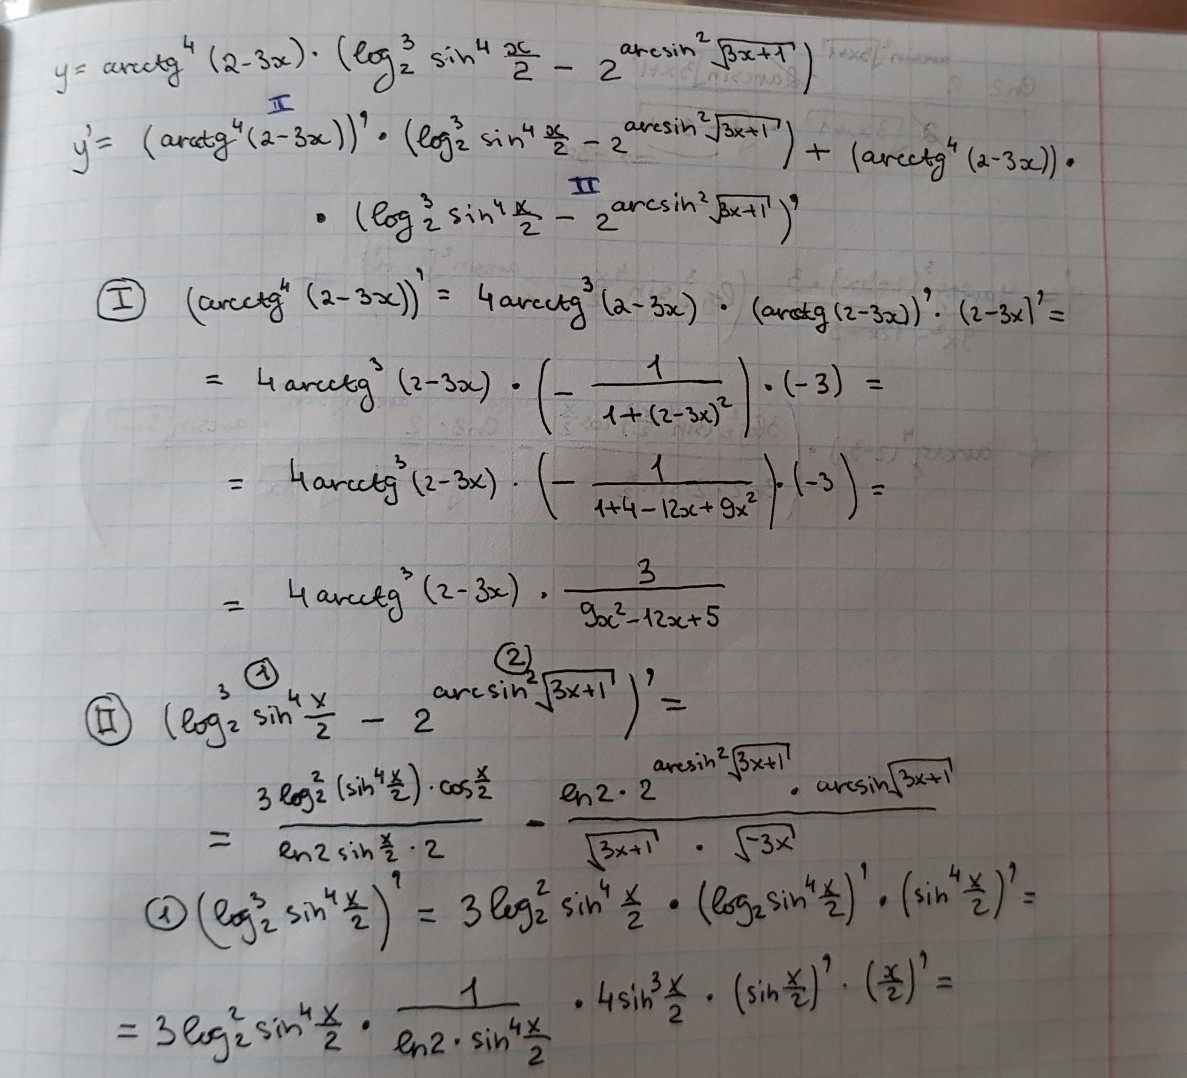 y = arcctg⁴ (2-3x) · (log₂³ sin⁴ x/2 - 2^(arcsin² √(3x+1)))
II
y' = (arcctg⁴ (2-3x))' · (log₂³ sin⁴ x/2 - 2^(arcsin² √(3x+1))) + (arcctg⁴ (2-3x)) ·
II
· (log₂³ sin⁴ x/2 - 2^(arcsin² √(3x+1)))'
I (arcctg⁴ (2-3x))' = 4 arcctg³ (2-3x) · (arcctg (2-3x))' · (2-3x)' =
= 4 arcctg³ (2-3x) · (- 1/(1+(2-3x)²)) · (-3) =
= 4 arcctg³ (2-3x) · (- 1/(1+4-12x+9x²)) · (-3) =
= 4 arcctg³ (2-3x) · 3/(9x²-12x+5)
1 2
II (log₂³ sin⁴ x/2 - 2^(arcsin² √(3x+1)))' =
= (3 log₂² (sin⁴ x/2) · cos x/2)/(ln2 sin x/2 · 2) - (ln2 · 2^(arcsin² √(3x+1)) · arcsin √(3x+1))/(√(3x+1) · √(-3x))
1 (log₂³ sin⁴ x/2)' = 3 log₂² sin⁴ x/2 · (log₂ sin⁴ x/2)' · (sin⁴ x/2)' =
= 3 log₂² sin⁴ x/2 · 1/(ln2 · sin⁴ x/2) · 4 sin³ x/2 · (sin x/2)' · (x/2)' =